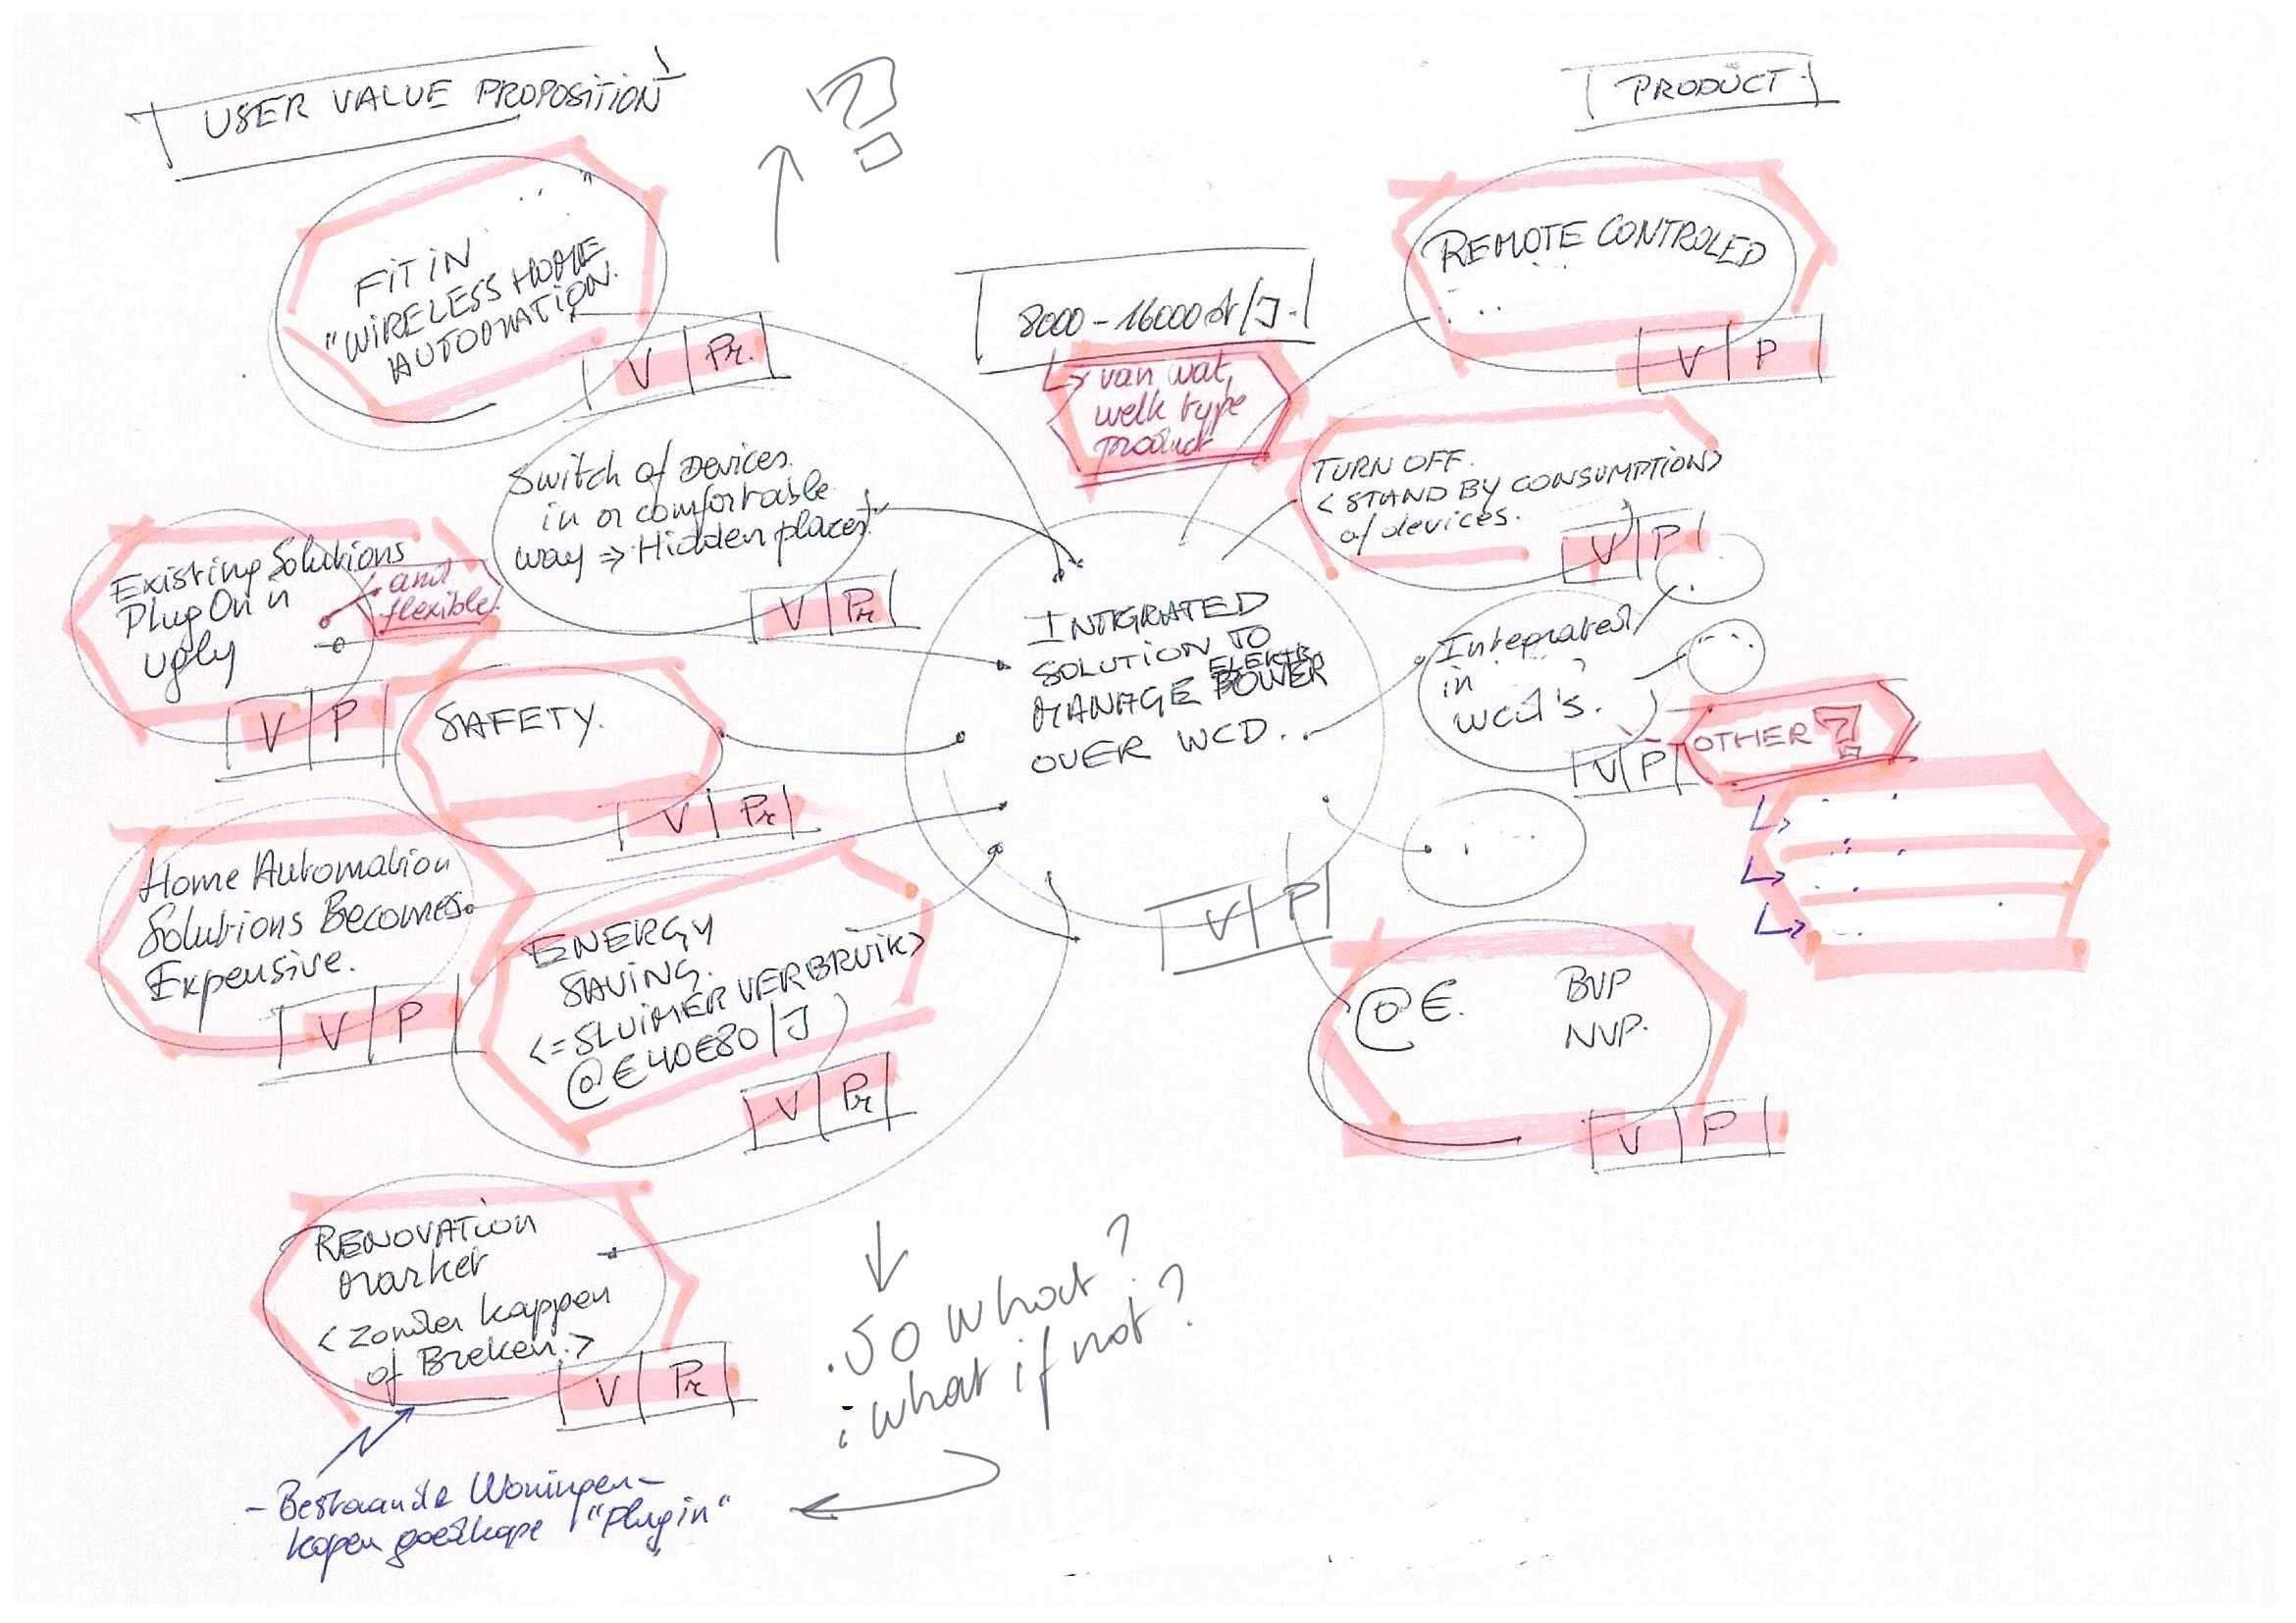 USER VALUE PROPOSITION
?
PRODUCT
FIT IN
"WIRELESS HOME
AUTOMATION.
V | Pr.
8000 - 16000 st/J.
van wat,
welk type
product
REMOTE CONTROLED
V | P
Switch of Devices
in a comfortable
way ⇒ Hidden places.
V | Pr
TURN OFF.
< STAND BY CONSUMPTION>
of devices.
V | P
Existing Solutions
Plug On n
ugly
and
flexible.
V | P
INTIGRATED
SOLUTION TO
MANAGE ELEKTR. POWER
OVER WCD.
V | P
Integrated
in ?
WCD's.
V | P
OTHER?
SAFETY.
V | Pr
Home Automation
Solutions Becomes
Expensive.
V | P
ENERGY
SAVING.
<= SLUIMER VERBRUIK>
@ € 40 € 80 / J
V | Pr
@ €. BVP
NVP.
V | P
RENOVATION
Market
< Zonder kappen
of Breken. >
V | Pr
So what?
what if not?
- Bestaande Woningen -
kopen goedkope "Plug in"